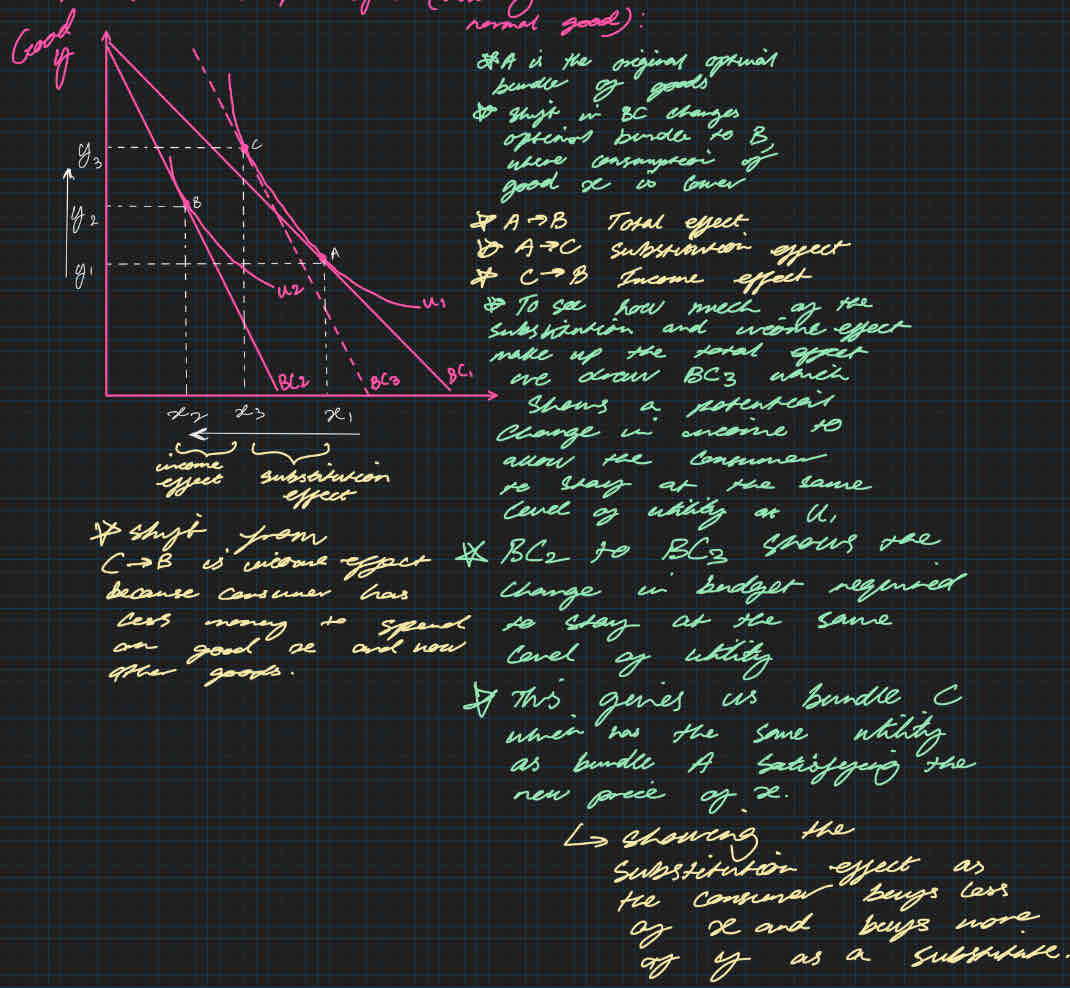 normal good):
Good
y
* A is the original optimal
bundle of goods
* Shift in BC changes
optimal bundle to B,
where consumption of
good x is lower
* A → B Total effect
* A → C Substitution effect
* C → B Income effect
* To see how much of the
substitution and income effect
make up the total effect
we draw BC3 which
shows a potential
change in income to
allow the consumer
to stay at the same
level of utility at U1
* BC2 to BC3 shows the
change in budget required
to stay at the same
level of utility
* This gives us bundle C
which has the same utility
as bundle A satisfying the
new price of x.
↳ showing the
substitution effect as
the consumer buys less
of x and buys more
of y as a substitute.
y3
y2
y1
C
B
A
U2
U1
BC2
BC3
BC1
x2 x3 x1
income
effect
substitution
effect
* Shift from
C → B is income effect
because consumer has
less money to spend
on good x and now
other goods.